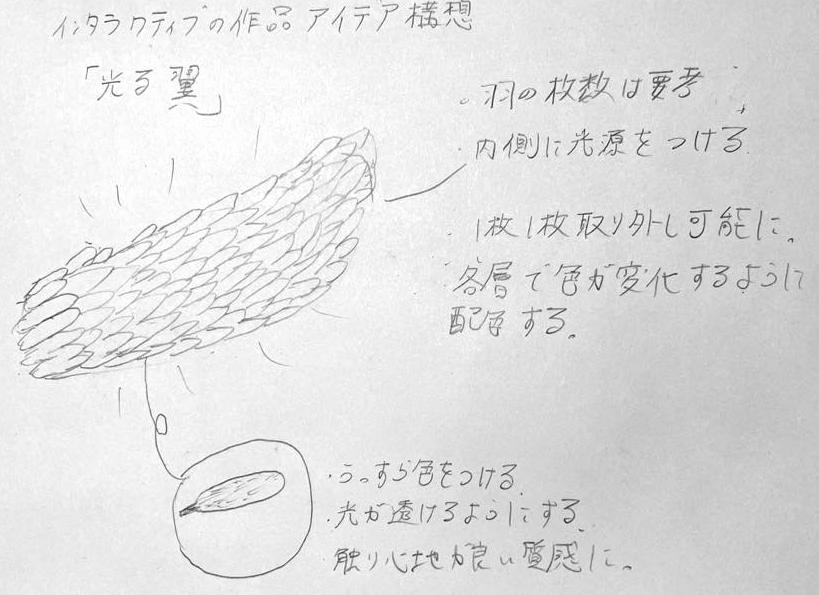 インタラクティブの作品アイデア構想
「光る翼」
・羽の枚数は要考
内側に光源をつける
・1枚1枚取り外し可能に。
・各層で色が変化するように
配色する。
・うっすら色をつける
・光が透けるようにする
・触り心地が良い質感に。